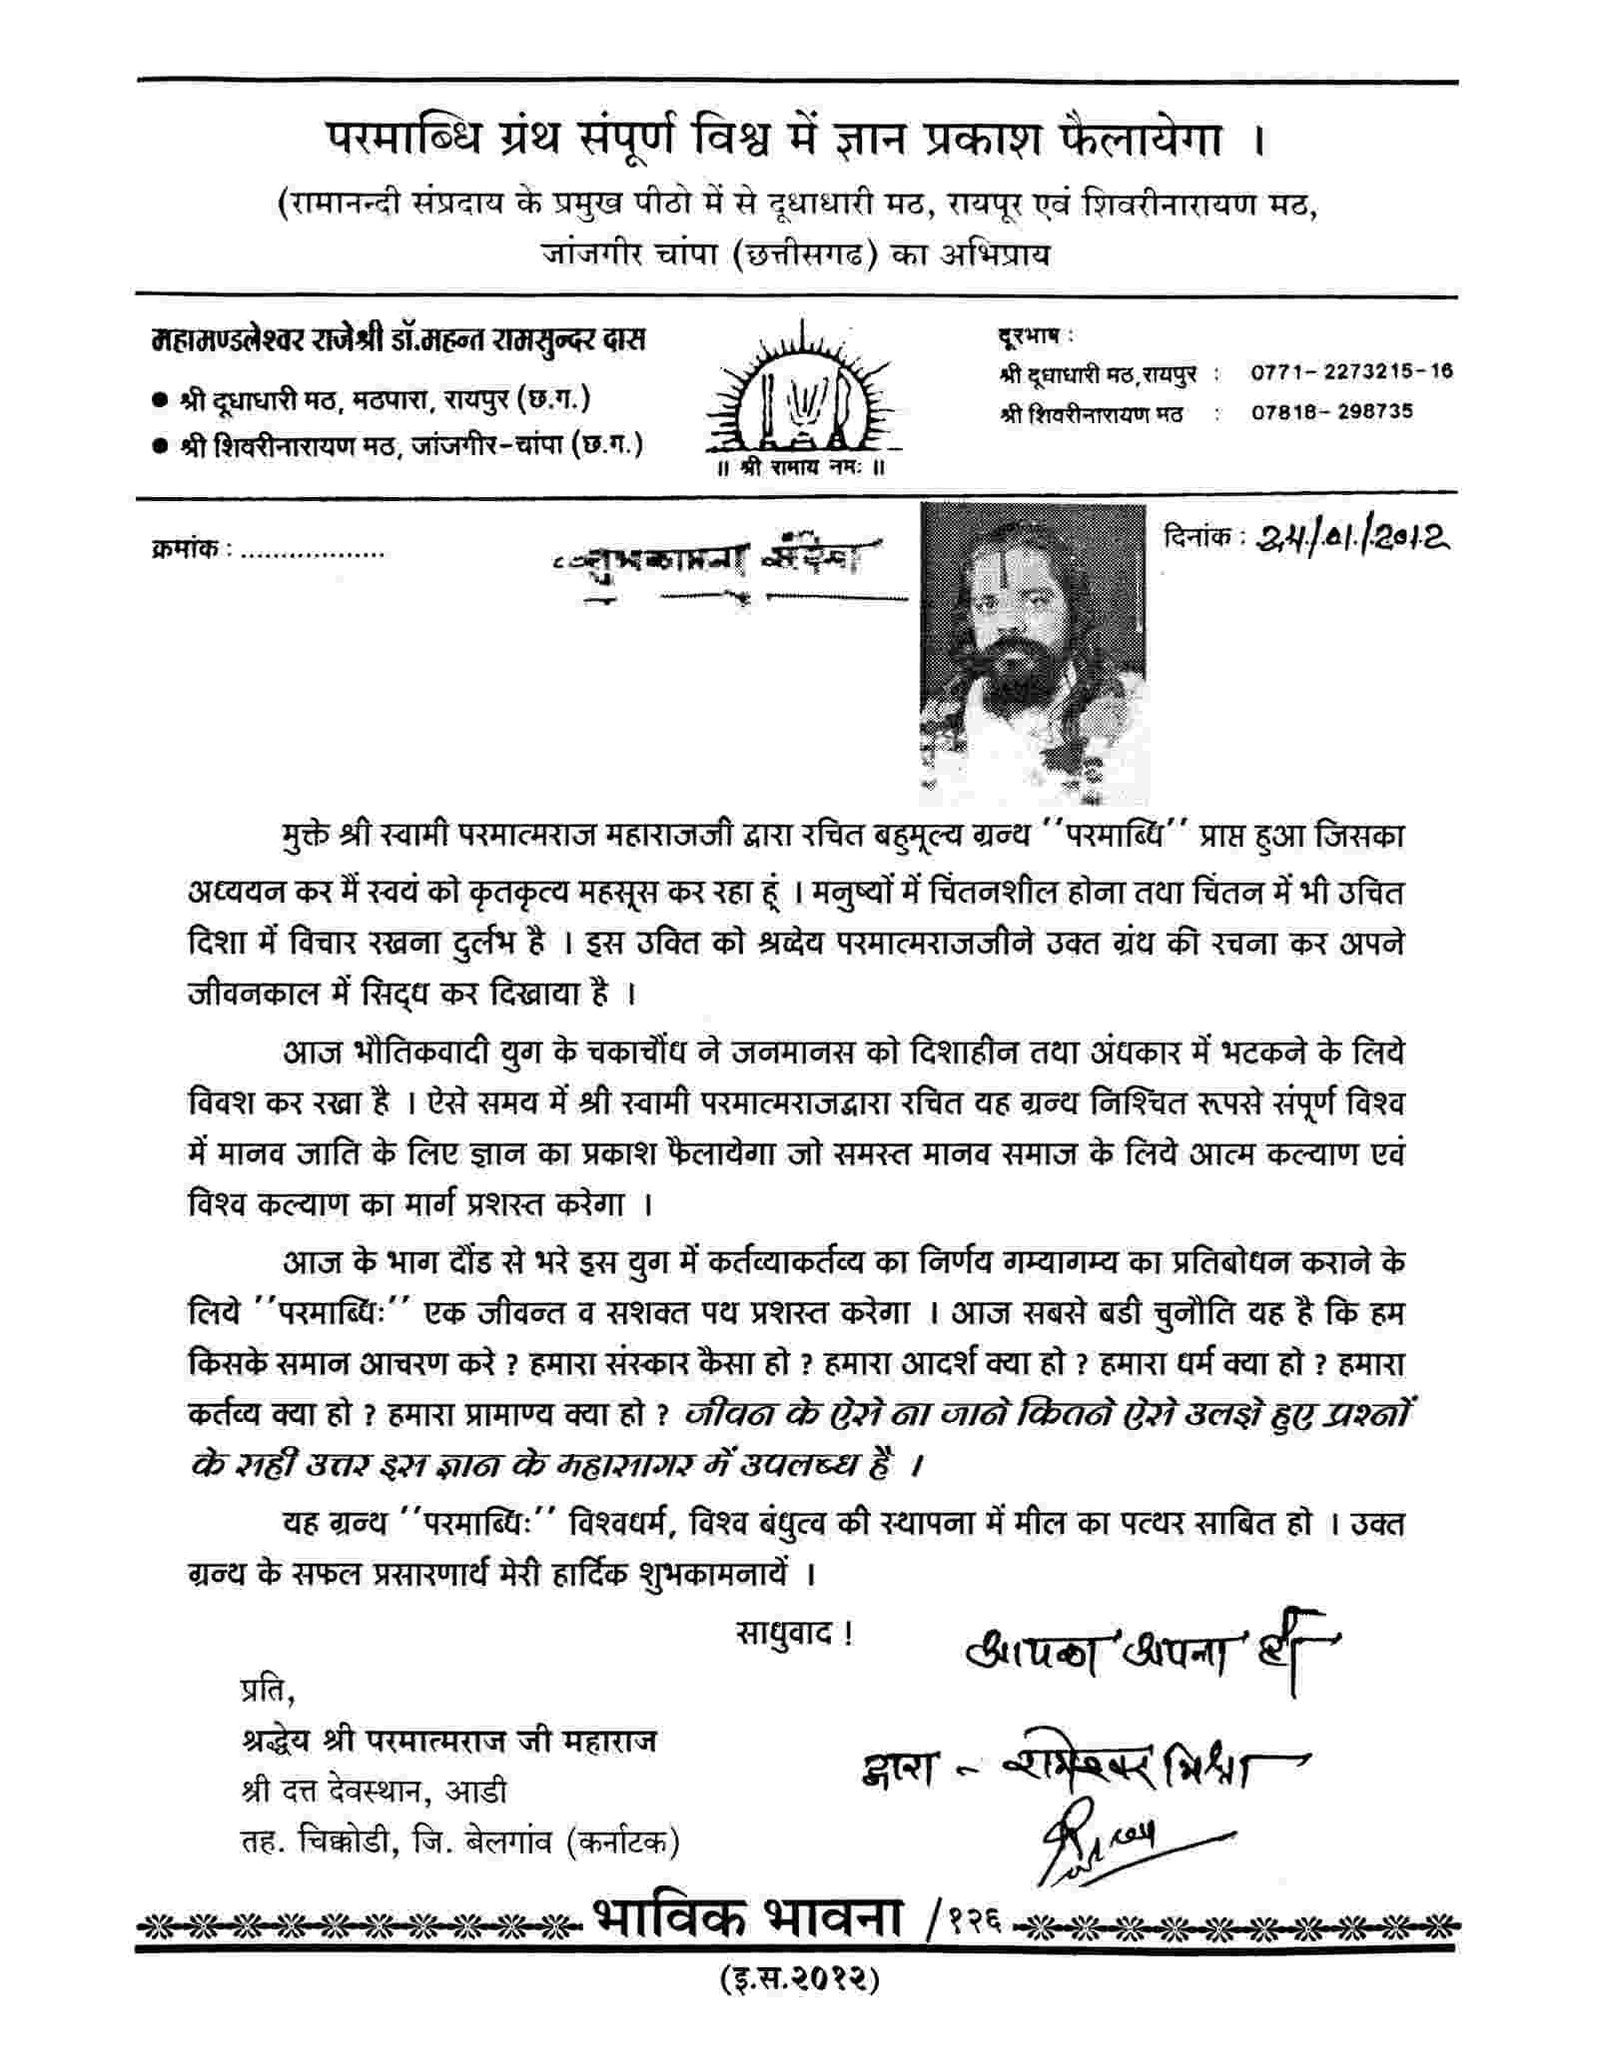 परमाब्धि ग्रंथ संपूर्ण विश्व में ज्ञान प्रकाश फैलायेगा ।
(रामानन्दी संप्रदाय के प्रमुख पीठो में से दूधाधारी मठ, रायपूर एवं शिवरीनारायण मठ,
जांजगीर चांपा (छत्तीसगढ) का अभिप्राय
महामण्डलेश्वर राजेश्री डॉ.महन्त रामसुन्दर दास
● श्री दूधाधारी मठ, मठपारा, रायपुर (छ.ग.)
● श्री शिवरीनारायण मठ, जांजगीर-चांपा (छ.ग.)
॥ श्री रामाय नमः ॥
दूरभाष :
श्री दूधाधारी मठ,रायपुर : 0771-2273215-16
श्री शिवरीनारायण मठ : 07818-298735
क्रमांक : ..................
शुभकामना संदेश
दिनांक : 24/01/2012
मुक्ते श्री स्वामी परमात्मराज महाराजजी द्वारा रचित बहुमूल्य ग्रन्थ ''परमाब्धि'' प्राप्त हुआ जिसका
अध्ययन कर मैं स्वयं को कृतकृत्य महसूस कर रहा हूं । मनुष्यों में चिंतनशील होना तथा चिंतन में भी उचित
दिशा में विचार रखना दुर्लभ है । इस उक्ति को श्रध्देय परमात्मराजजीने उक्त ग्रंथ की रचना कर अपने
जीवनकाल में सिद्ध कर दिखाया है ।
आज भौतिकवादी युग के चकाचौंध ने जनमानस को दिशाहीन तथा अंधकार में भटकने के लिये
विवश कर रखा है । ऐसे समय में श्री स्वामी परमात्मराजद्वारा रचित यह ग्रन्थ निश्चित रूपसे संपूर्ण विश्व
में मानव जाति के लिए ज्ञान का प्रकाश फैलायेगा जो समस्त मानव समाज के लिये आत्म कल्याण एवं
विश्व कल्याण का मार्ग प्रशस्त करेगा ।
आज के भाग दौंड से भरे इस युग में कर्तव्याकर्तव्य का निर्णय गम्यागम्य का प्रतिबोधन कराने के
लिये ''परमाब्धिः'' एक जीवन्त व सशक्त पथ प्रशस्त करेगा । आज सबसे बडी चुनौति यह है कि हम
किसके समान आचरण करे ? हमारा संस्कार कैसा हो ? हमारा आदर्श क्या हो ? हमारा धर्म क्या हो ? हमारा
कर्तव्य क्या हो ? हमारा प्रामाण्य क्या हो ? जीवन के ऐसे ना जाने कितने ऐसे उलझे हुए प्रश्नों
के सही उत्तर इस ज्ञान के महासागर में उपलब्ध हैं ।
यह ग्रन्थ ''परमाब्धिः'' विश्वधर्म, विश्व बंधुत्व की स्थापना में मील का पत्थर साबित हो । उक्त
ग्रन्थ के सफल प्रसारणार्थ मेरी हार्दिक शुभकामनायें ।
साधुवाद !
आपका अपना ही
प्रति,
श्रद्धेय श्री परमात्मराज जी महाराज
श्री दत्त देवस्थान, आडी
तह. चिक्कोडी, जि. बेलगांव (कर्नाटक)
द्वारा - रामेश्वर मिश्रा
भाविक भावना / १२६
(इ.स.२०१२)